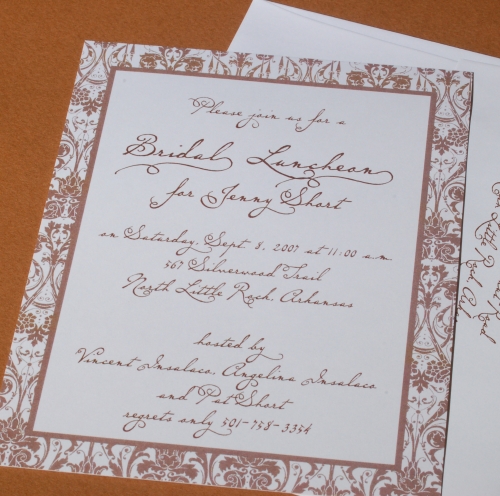 Please join us for a
Bridal Luncheon
for Jenny Short
on Saturday, Sept. 8, 2007 at 11:00 am
567 Silverwood Trail
North Little Rock, Arkansas
hosted by
Vincent Insalaco, Angelina Insalaco
and Pat Short
regrets only 501-758-3354